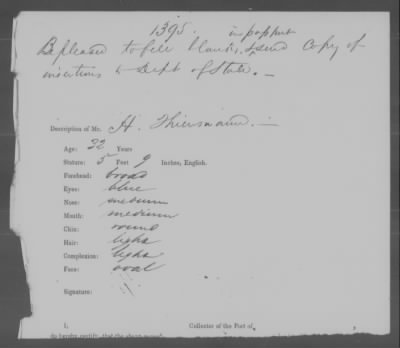 1395. in passport
Be pleased to fill blanks, & send copy of
insertions to Dept of State. —
Description of Mr. H. Thiersmann. —
Age: 32 Years
Stature: 5 Feet 9 Inches, English.
Forehead: broad
Eyes: blue
Nose: medium
Mouth: medium
Chin: round
Hair: light
Complexion: light
Face: oval
Signature:
I, Collector of the Port of
do hereby certify, that the above named